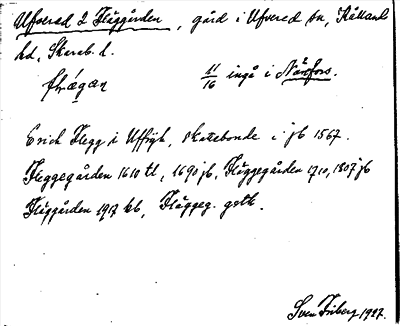 Ufvered 2 Fläggården, gård i Ufvered sn, Kålland
hd, Skarab. l.
flǽgaṇ 11/16 ingå i Nårfors.
Erich Flegg i Uffryh, skattebonde i jb 1567.
Fleggegården 1610 tl, 1690 jb, Fläggegården 1710, 1807 jb
Fläggården 1917 kb, Flägge g. gstk.
Sven Friberg 1927.